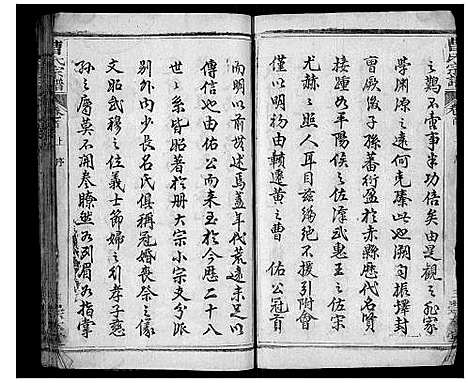 之鷄不啻事半功倍矣由是觀之非家
學淵源之遠何克臻此也溯自振鐸封
曹厥後子孫蕃衍盈於赤縣歷代名賢
接踵如平陽侯之佐漢武惠王之佐宋
尤赫々照人耳目茲編總不援引附會
僅以明初由贛遷黃之曹 佑公冠首
而明以前故述焉蓋年代荒遠未足以
傳信也由佑公而來至於今歷二十八
世世系皆昭著於册大宗小宗支分派
別外内少長名氏俱稱冠婚喪祭之儀
文昭武穆之位義士節婦之列孝子慈
孫之厲莫不開卷瞭然如列眉如指掌
曹氏宗譜
卷首
上
序
曹氏宗譜
卷首